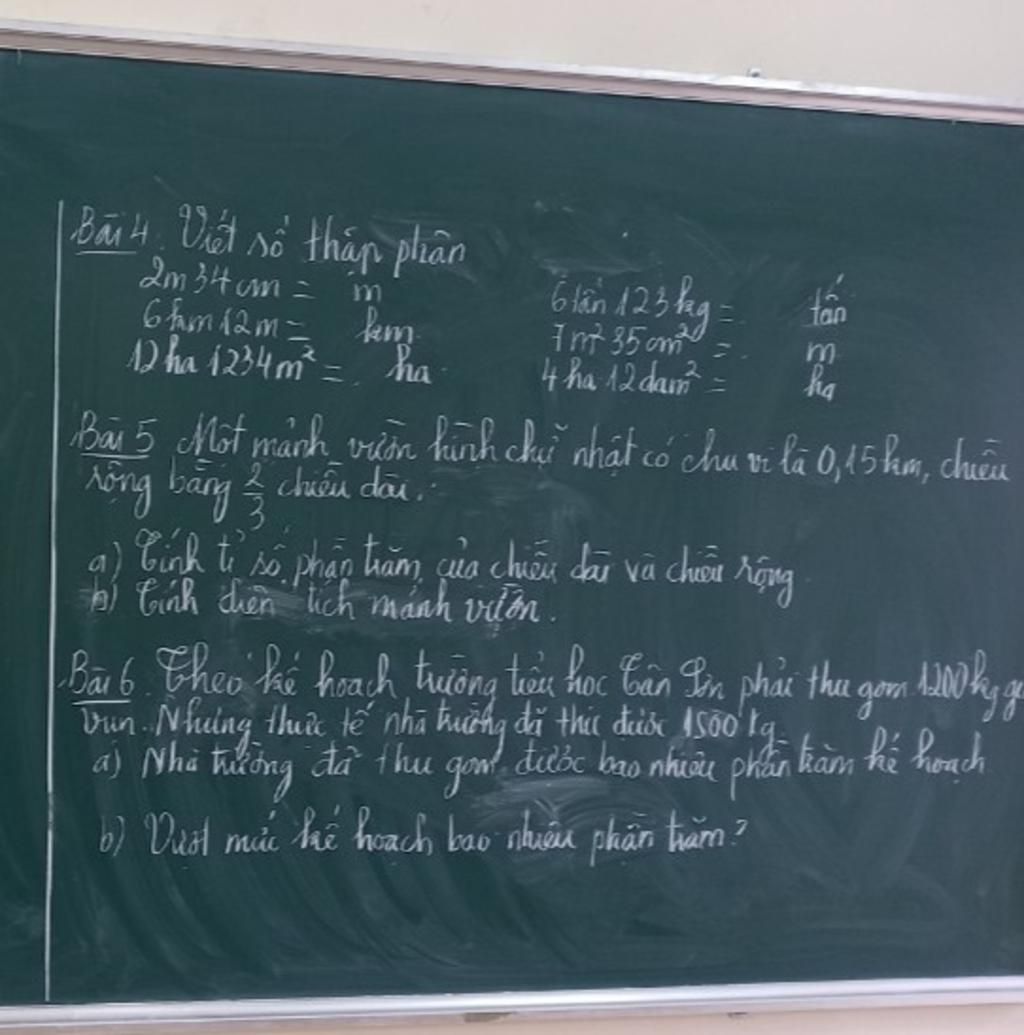 Bài 4. Viết số thập phân
2m 34cm = m
6 tấn 123kg = tấn
6km 12m = km
7m² 35cm² = m
12ha 1234m² = ha
4 ha 12dam² = ha
Bài 5 Một mảnh vườn hình chữ nhật có chu vi là 0,15km, chiều
rộng bằng 2/3 chiều dài.
a) Tính tỉ số phần trăm của chiều dài và chiều rộng
b) Tính diện tích mảnh vườn.
Bài 6. Theo kế hoạch trường tiểu học Tân phải thu gom 1200kg
vụn. Nhưng thực tế nhà trường đã thu được 1500kg
a) Nhà trường đã thu gom được bao nhiêu phần trăm kế hoạch
b) Vượt mức kế hoạch bao nhiêu phần trăm?